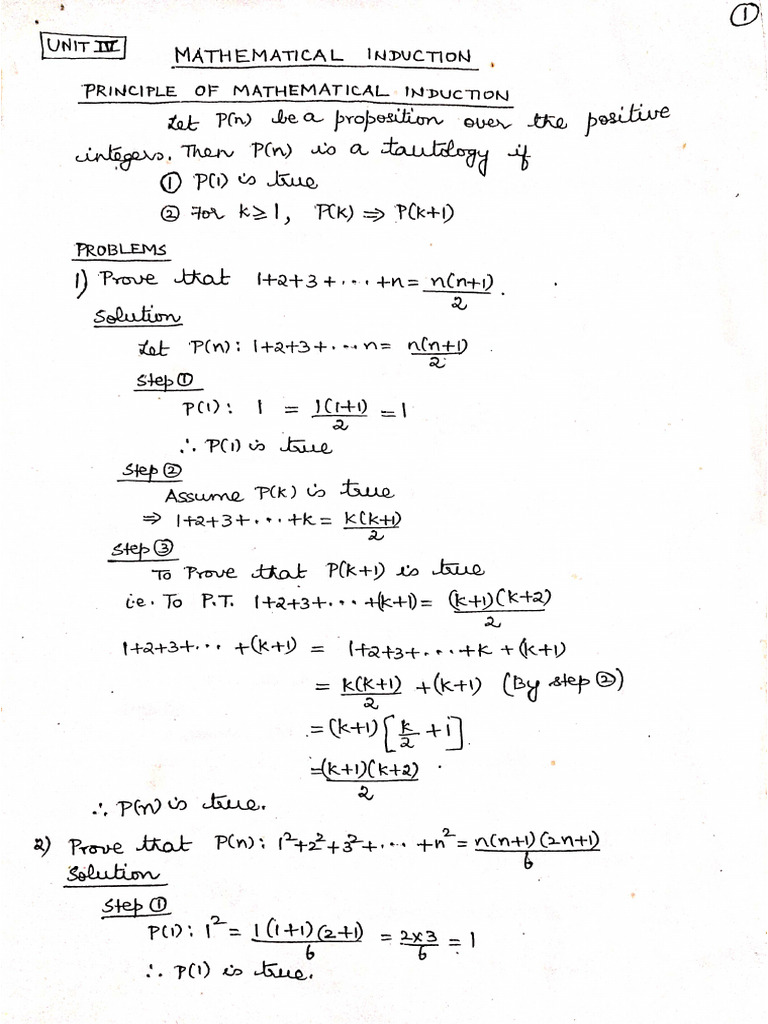 1
UNIT IV
MATHEMATICAL INDUCTION.
PRINCIPLE OF MATHEMATICAL INDUCTION
Let P(n) be a proposition over the positive
integers. Then P(n) is a tautology if
① P(1) is true
② For k≥1, P(k) ⇒ P(k+1)
PROBLEMS
1) Prove that 1+2+3+....+n = n(n+1)/2.
Solution
Let P(n): 1+2+3+...n = n(n+1)/2.
Step ①
P(1): 1 = 1(1+1)/2 = 1
∴ P(1) is true
Step ②
Assume P(k) is true
⇒ 1+2+3+...+k = k(k+1)/2
Step ③
To Prove that P(k+1) is true
i.e. To P.T. 1+2+3+...+(k+1) = (k+1)(k+2)/2
1+2+3+... +(k+1) = 1+2+3+...+k+(k+1)
= k(k+1)/2 +(k+1) (By step ②)
= (k+1)[k/2 +1]
= (k+1)(k+2)/2.
∴ P(n) is true.
2) Prove that P(n): 1²+2²+3²+...+n² = n(n+1)(2n+1)/6
Solution
Step ①
P(1): 1² = 1(1+1)(2+1)/6 = 2×3/6 = 1
∴ P(1) is true.